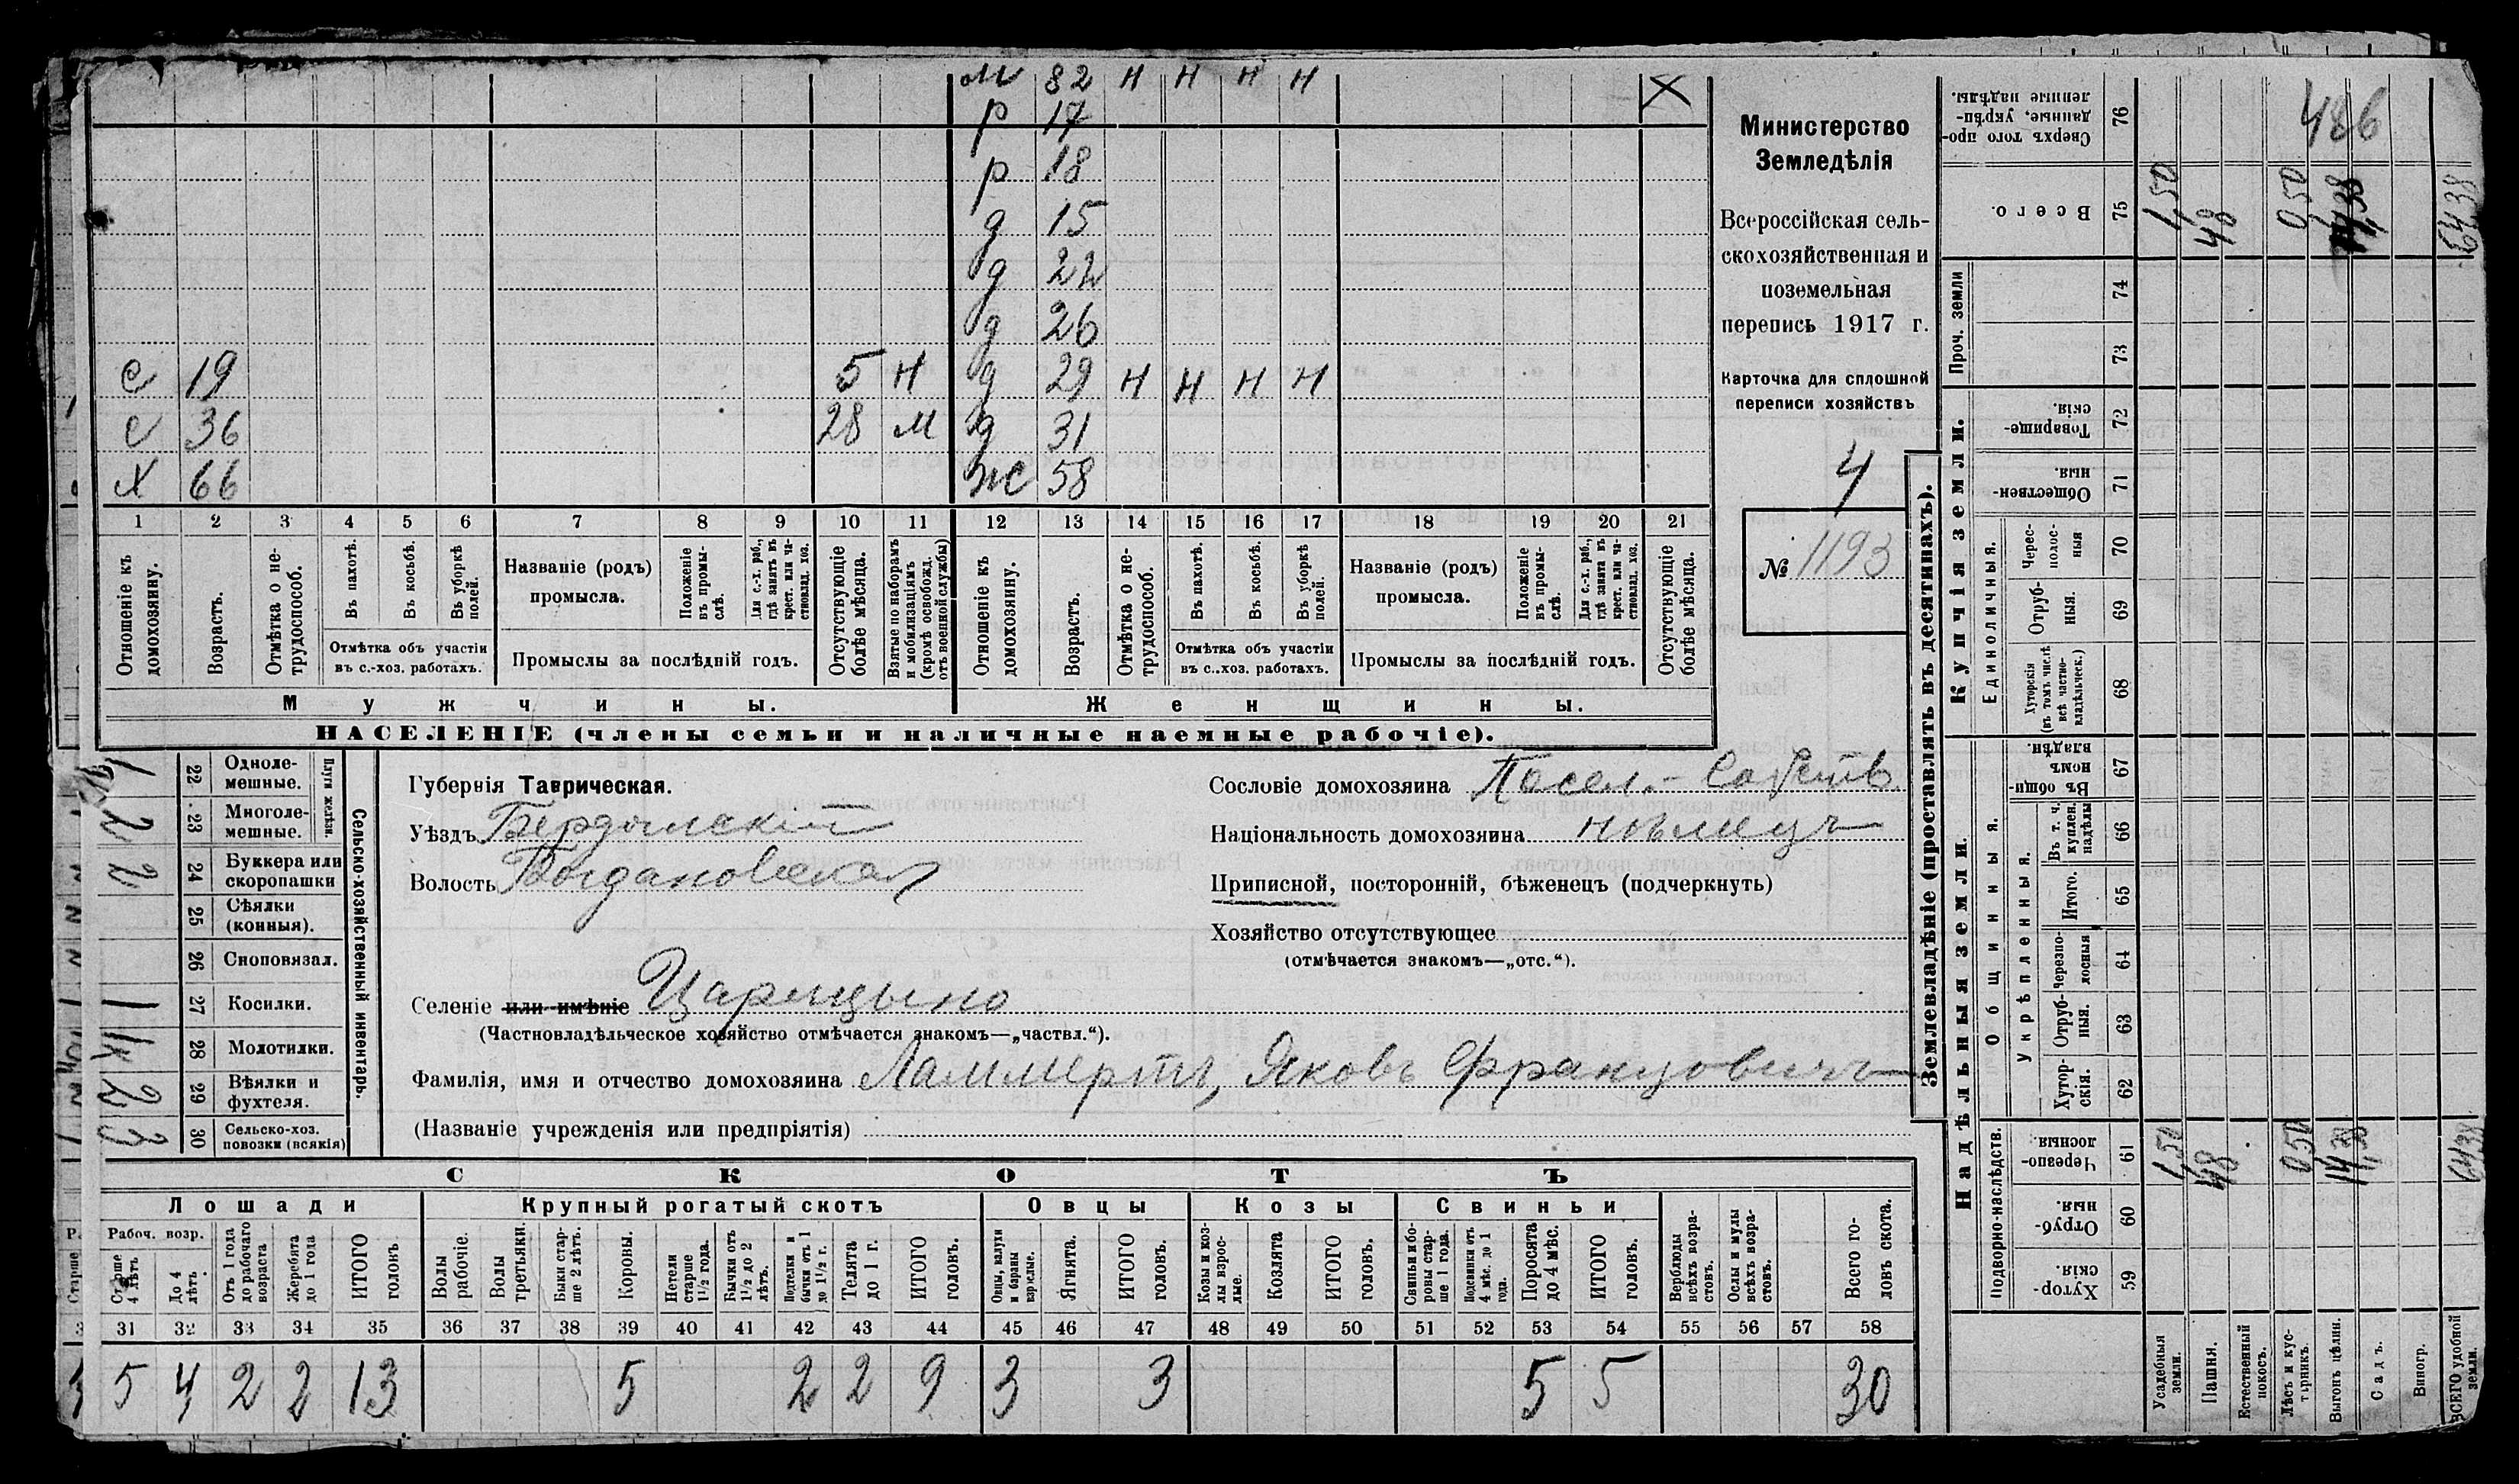 м 82 н н н н
р 17
р 18
д 15
д 22
д 26
с 19 5 н д 29 н н н н
с 36 28 м д 31
х 66 ж 58
1 2 3 4 5 6 7 8 9 10 11 12 13 14 15 16 17 18 19 20 21
Отношеніе къ домохозяину.
Возрастъ.
Отмѣтка о не-трудоспособ.
Въ пахотѣ.
Въ косьбѣ.
Въ уборкѣ полей.
Отмѣтка объ участіи въ с.-хоз. работахъ.
Названіе (родъ) промысла.
Положеніе въ промы-слѣ.
Для с.-х. раб., гдѣ занятъ въ крест. или ча-стновлад. хоз.
Промыслы за послѣдній годъ.
Отсутствующіе болѣе мѣсяца.
Взятые по наборамъ и мобилизаціямъ (кромѣ освобожд. отъ военной службы)
Отношеніе къ домохозяину.
Возрастъ.
Отмѣтка о не-трудоспособ.
Въ пахотѣ.
Въ косьбѣ.
Въ уборкѣ полей.
Отмѣтка объ участіи въ с..хоз. работахъ.
Названіе (родъ) промысла.
Положеніе въ промы-слѣ.
Для с.-х. раб., гдѣ занята въ крест. или ча-ствовлад. хоз.
Промыслы за послѣдній годъ.
Отсутствующіе болѣе мѣсяца.
Мужчины. Женщины.
НАСЕЛЕНІЕ (члены семьи и наличные наемные рабочіе).
Министерство
Земледѣлія
Всероссійская сель-
скохозяйственная и
поземельная
перепись 1917 г.
Карточка для сплошной
переписи хозяйствъ
4
№ 1193
22 Одноле-мешные. 1
23 Многоле-мешные. 2
Плуги желѣзн.
24 Буккера или скоропашки 2
25 Сѣялки (конныя).
26 Сноповязал.
27 Косилки. 1
28 Молотилки. 1к
29 Вѣялки и фухтеля. 2
30 Сельско-хоз. повозки (всякія) 3
Сельско-хозяйственный инвентарь.
Губернія Таврическая.
Уѣздъ Бердянскій
Волость Богдановская
Сословіе домохозяина Посел.-Собств.
Національность домохозяина нѣмецъ
Приписной, посторонній, бѣженецъ (подчеркнуть)
Хозяйство отсутствующее
(отмѣчается знакомъ—„отс.“).
Селеніе или имѣніе Царицыно
(Частновладѣльческое хозяйство отмѣчается знакомъ—„частвл.“).
Фамилія, имя и отчество домохозяина Ламмертъ, Яковъ Францовичъ
(Названіе учрежденія или предпріятія)
СКОТЪ
Лошади Крупный рогатый скотъ Овцы Козы Свиньи
Рабоч. возр.
Старше 4 лѣтъ
До 4 лѣтъ
Отъ 1 года до рабочаго возраста
Жеребята до 1 года
ИТОГО головъ.
Волы рабочіе.
Волы третьяки.
Быки стар-ше 2 лѣтъ.
Коровы.
Нетели старше 1½ года.
Бычки отъ 1½ до 2 лѣтъ.
Подтелки и бычки отъ 1 до 1½ г.
Телята до 1 г.
ИТОГО головъ.
Овцы, валухи и бараны взрослые.
Ягнята.
ИТОГО головъ.
Козы и коз-лы взрос-лые.
Козлята
ИТОГО головъ.
Свиньи и бо-ровы стар-ше 1 года.
Подсвинки отъ 4 мѣс. до 1 года.
Поросята до 4 мѣс.
ИТОГО головъ.
Верблюды всѣхъ возра-стовъ.
Ослы и мулы всѣхъ возра-стовъ.
Всего го-ловъ скота.
31 32 33 34 35 36 37 38 39 40 41 42 43 44 45 46 47 48 49 50 51 52 53 54 55 56 57 58
5 4 2 2 13 5 2 2 9 3 3 5 5 30
Землевладѣніе (проставлять въ десятинахъ).
Надѣльныя земли. Купчія земли.
Проч. земли
Подворно-наслѣдств.
Общинныя.
Укрѣпленныя.
Единоличныя.
76 Сверхъ того про-данные, укрѣп-ленные надѣлы. 486
75 Всего. 1,50 48 0,50 14,38 64,38
74
73
72 Товарище-скія.
71 Обществен-ныя.
70 Черес-полос-ныя
69 Отруб-ныя.
68 Хуторскія (въ томъ числѣ всѣ частно-владѣльческ.)
67 Въ общи-номъ владѣн.
66 Въ т. ч. куплен. надѣлы
65 Итого.
64 Черезпо-лосныя
63 Отруб-ныя.
62 Хутор-скія.
61 Черезпо-лосныя. 1,50 48 0,50 14,38 64,38
60 Отруб-ныя.
59 Хутор-скія.
Усадебныя земли.
Пашня.
Естественный покосъ.
Лѣсъ и кус-тарникъ.
Выгонъ цѣлин.
Садъ.
Виногр.
ВСЕГО удобной земли.